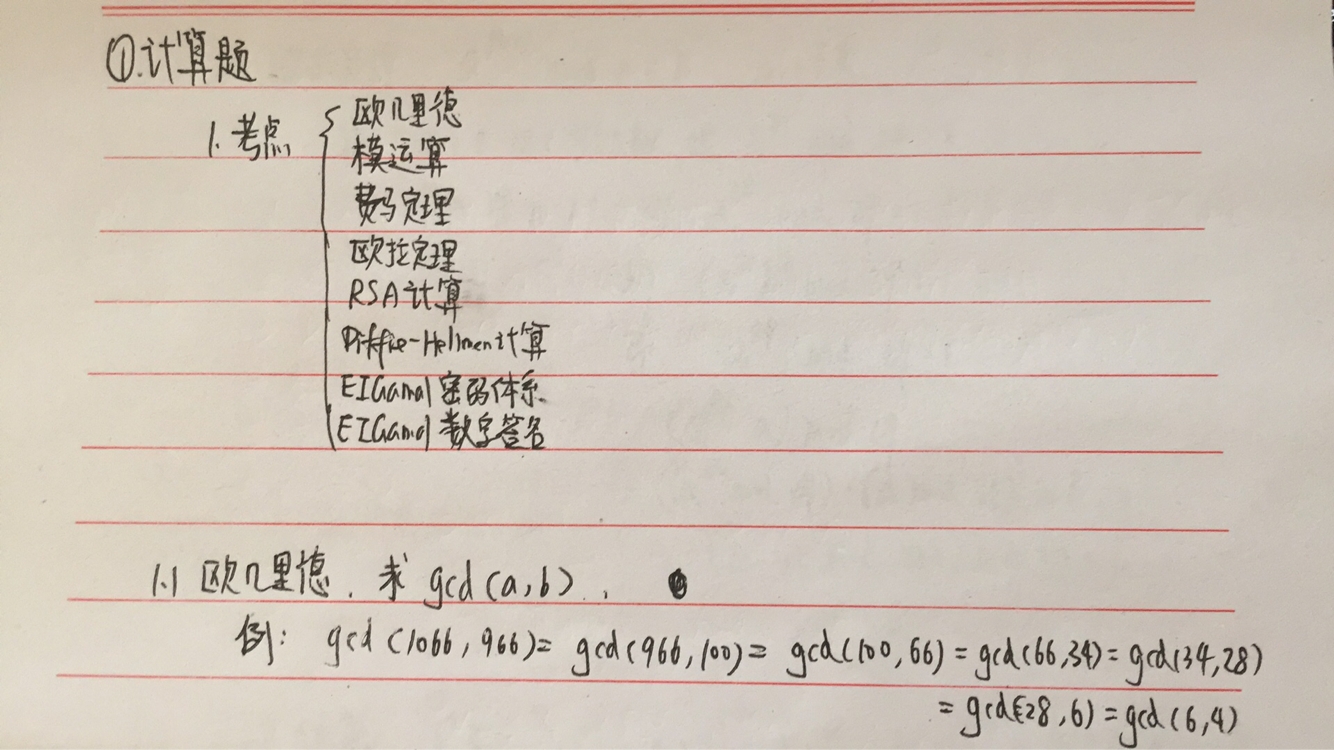 ①.计算题
1.考点
欧几里德
模运算
费马定理
欧拉定理
RSA计算
Diffie-Hellmen计算
EIGamal密码体系.
EIGamal数字签名
1.1 欧几里德. 求 gcd(a,b).
例: gcd(1066,966)= gcd(966,100)= gcd(100,66)=gcd(66,34)=gcd(34,28)
=gcd(28,6)=gcd(6,4)